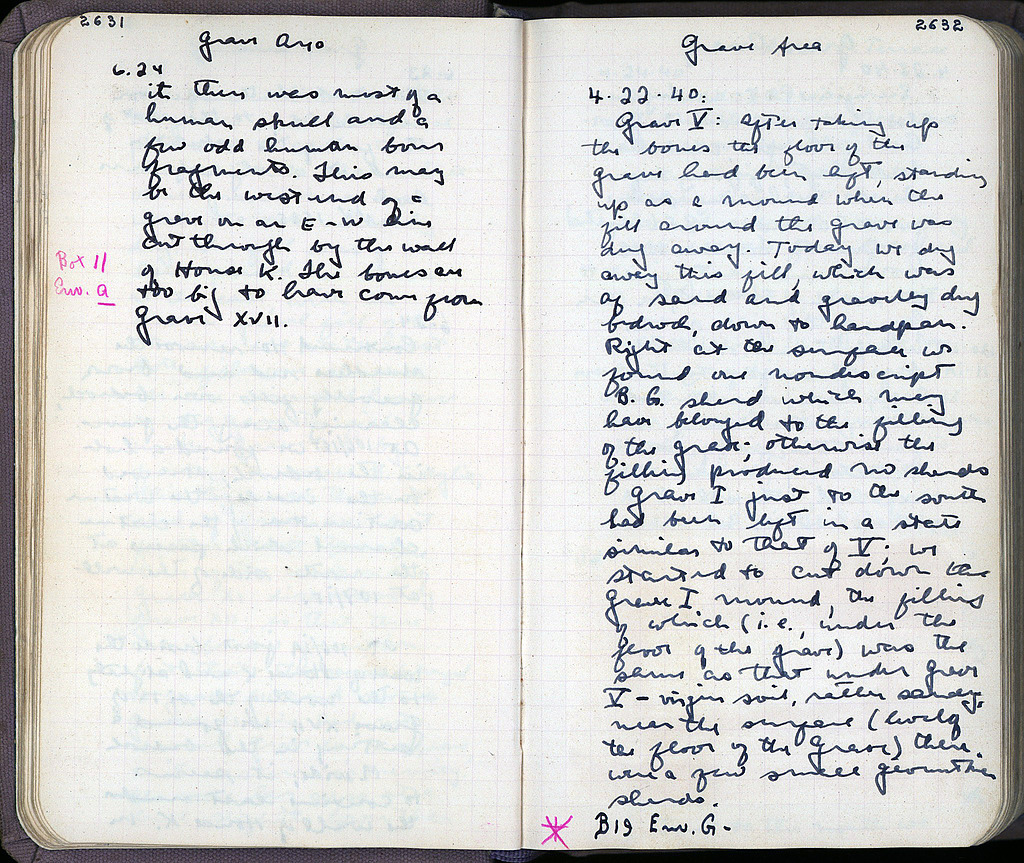 2631
Grave Area
6.24
it there was most of a
human skull and a
few odd human bone
fragments. This may
be the west end of a
grave on an E-W line
cut through by the wall
of House K. The bones are
too big to have come from
Grave XVII.
Box 11
Env. a
2632
Grave Area
4.22.40:
Grave V: After taking up
the bones the floor of the
grave had been left, standing
up as a mound when the
fill around the grave was
dug away. Today we dug
away this fill, which was
of sand and gravelley dug
bedrock, down to hardpan.
Right at the surface we
found one nondescript
B.G. sherd which may
have belonged to the filling
of the grave; otherwise the
filling produced no sherds
Grave I just to the south
had been left in a state
similar to that of V; we
started to cut down the
Grave I mound, the filling
of which (i.e., under the
floor of the grave) was the
same as that under Grave
V - virgin soil, rather sandy.
near the surface (level of
the floor of the Grave) there
were a few small geometric
sherds.
B19 Env. G-